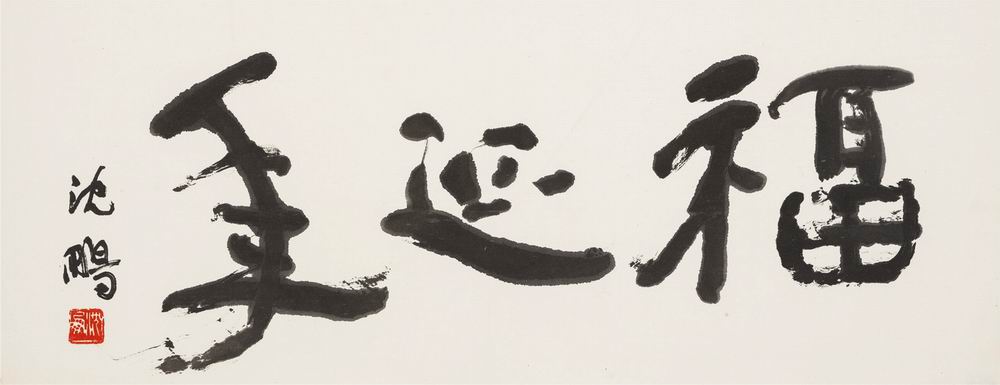 福延年
沈鹏